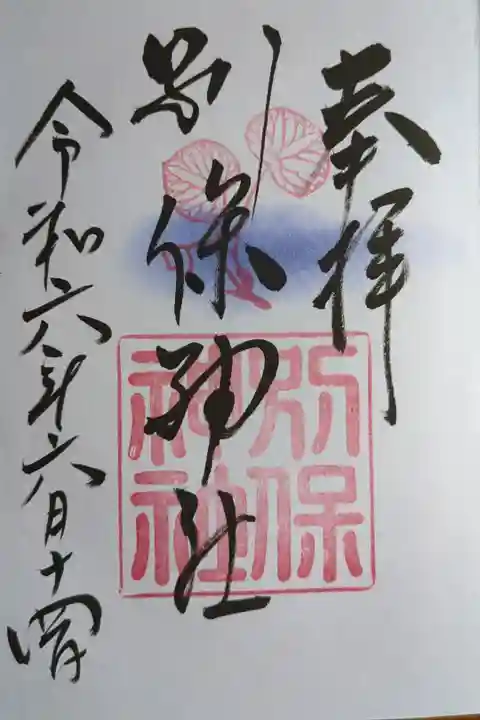 奉拝
別保神社
別保
神社
令和六年六月十四日